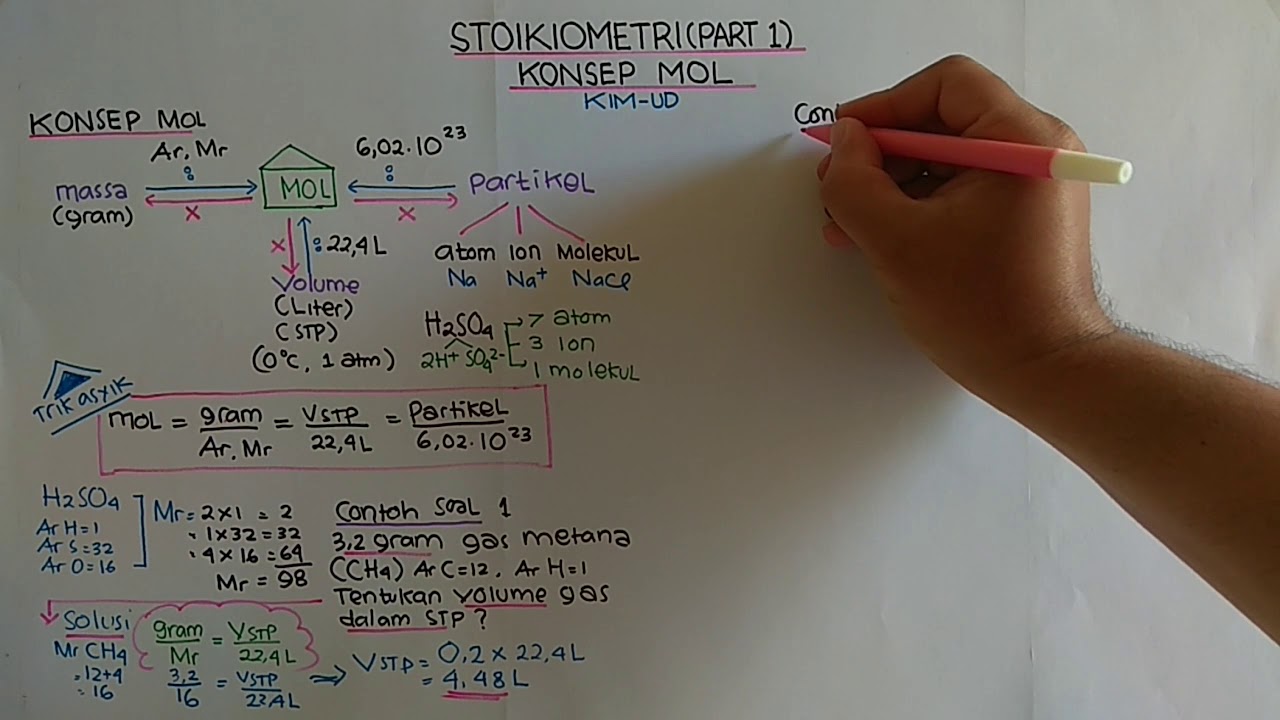 STOIKIOMETRI (PART 1)
KONSEP MOL
KIM-UD
KONSEP MOL
Ar, Mr
:
massa
(gram)
x
MOL
6,02.10²³
:
x
Partikel
x
: 22,4 L
Volume
(Liter)
(STP)
(0°C, 1 atm)
atom Ion Molekul
Na Na⁺ NaCl
H₂SO₄ 7 atom
2H⁺ SO₄²⁻ 3 Ion
1 molekul
Trik asyik
mol = gram/Ar, Mr = VSTP/22,4 L = Partikel/6,02.10²³
H₂SO₄
Ar H=1
Ar S=32
Ar O=16
Mr = 2x1 = 2
1x32=32
4x16=64
Mr = 98
Contoh soal 1
3,2 gram gas metana
(CH₄) Ar C=12, Ar H=1
Tentukan volume gas
dalam STP?
Solusi
Mr CH₄
=12+4
=16
gram/Mr = VSTP/22,4 L
3,2/16 = VSTP/22,4L
VSTP = 0,2 x 22,4 L
= 4,48 L
Con